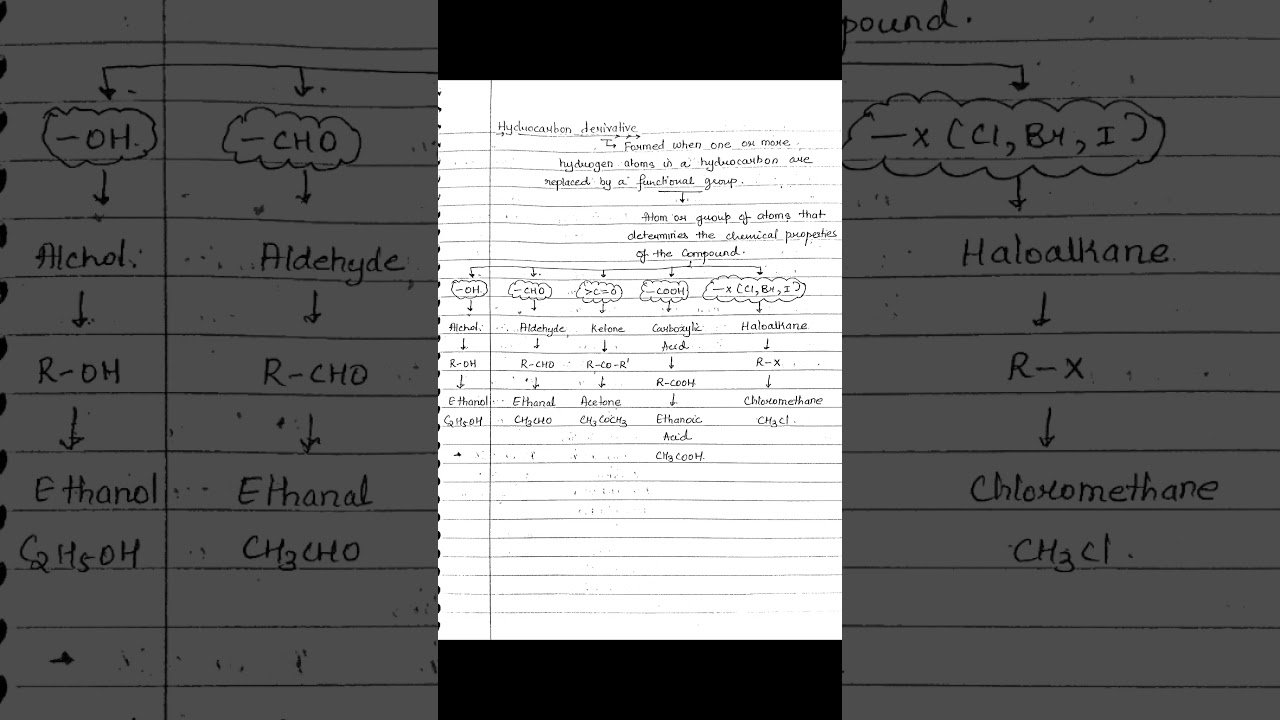 Hydrocarbon derivative
↳ Formed when one or more
hydrogen atoms in a hydrocarbon are
replaced by a functional group.
Atom or group of atoms that
determines the chemical properties
of the compound.
-OH. -CHO >C=O -COOH -X (Cl, Br, I)
Alchol. Aldehyde Ketone Carboxylic Haloalkane
Acid
R-OH R-CHO R-CO-R' R-X
R-COOH
Ethanol Ethanal Acetone Chloromethane
C2H5OH CH3CHO CH3COCH3 Ethanoic CH3Cl.
Acid
CH3COOH.
-OH. -CHO
Alchol. Aldehyde
R-OH R-CHO
Ethanol Ethanal
C2H5OH CH3CHO
pound.
-X (Cl, Br, I)
Haloalkane
R-X
Chloromethane
CH3Cl.